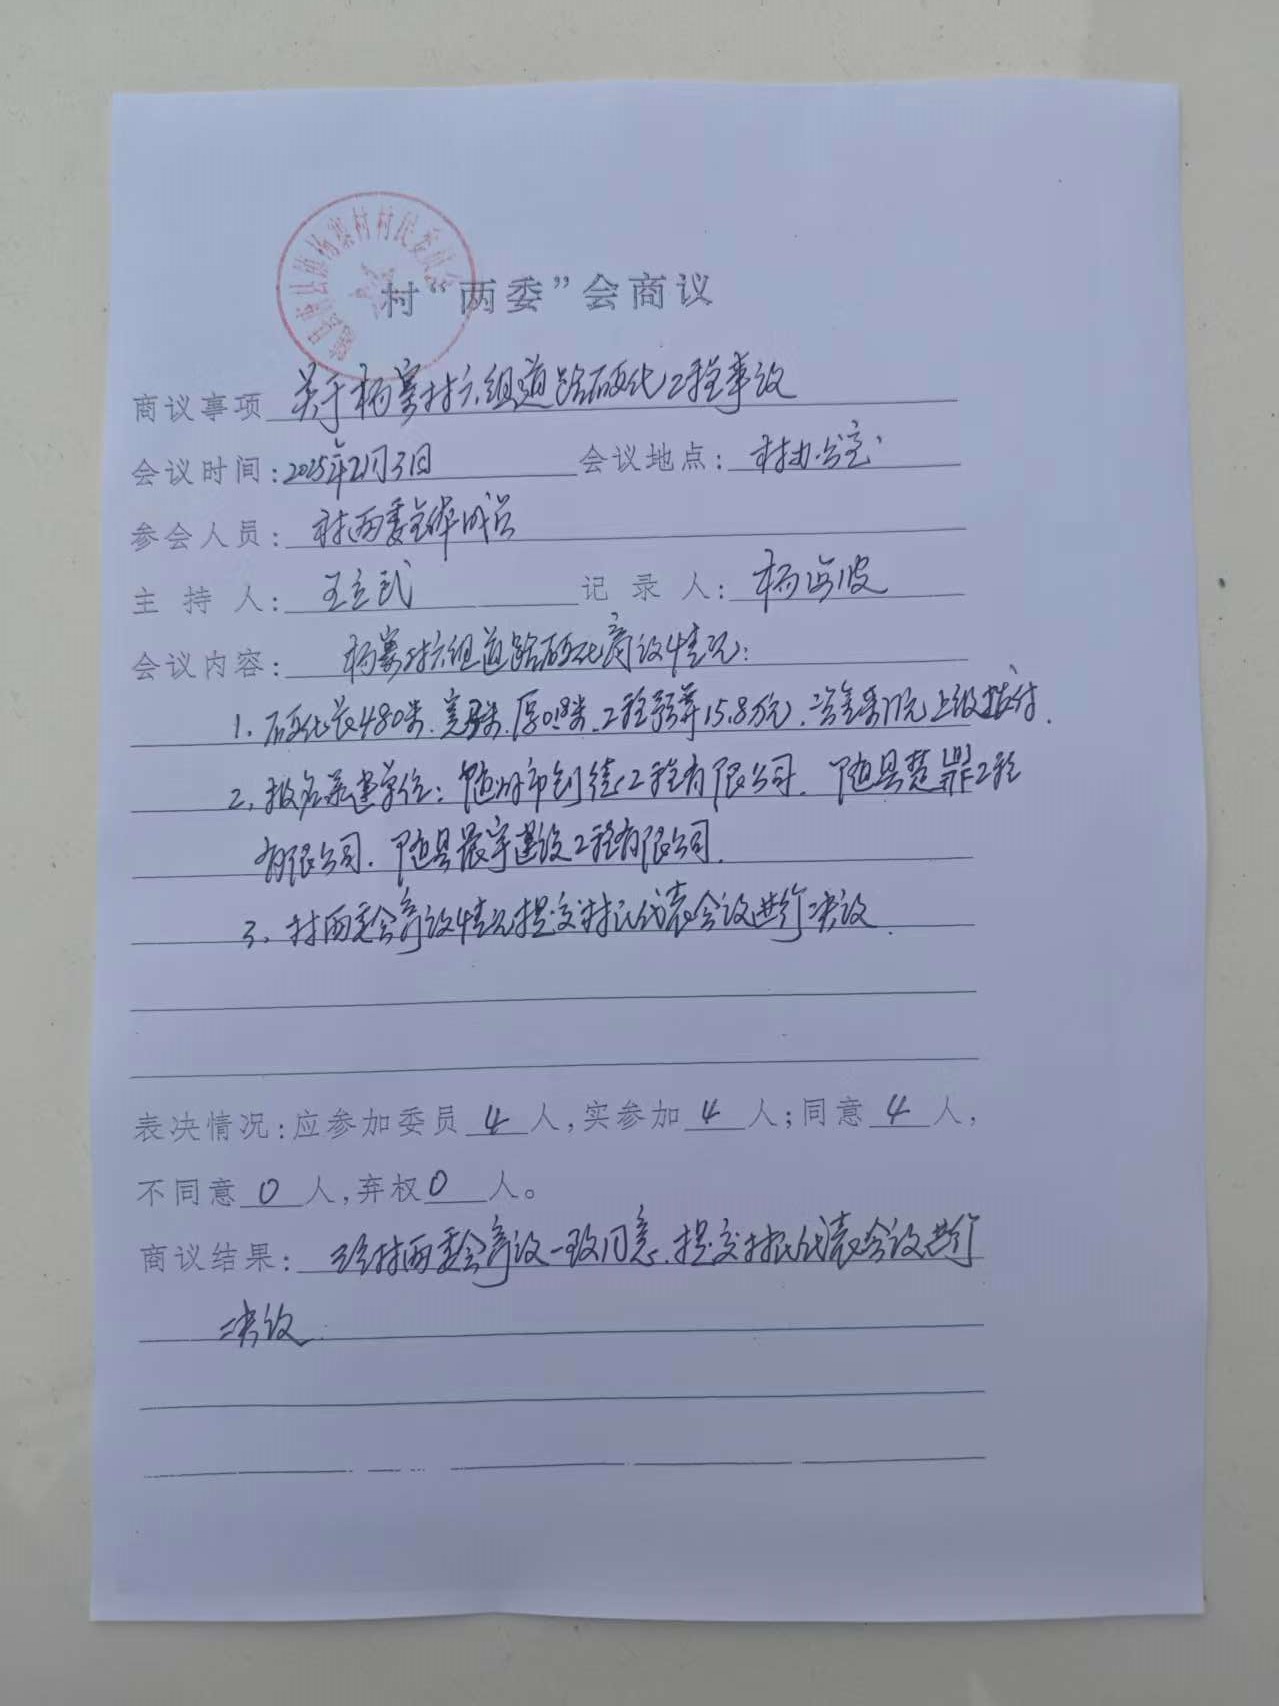 村“两委”会商议
商议事项 关于杨寨村六组道路硬化工程事议
会议时间: 2025年2月3日 会议地点: 村办公室
参会人员: 村两委全体成员
主持人: 王立武 记录人: 杨海波
会议内容: 杨寨村六组道路硬化商议情况:
1. 硬化长480米. 宽 米. 厚0.18米. 工程预算15.8万元. 资金 上级拨付.
2. 报名承建单位: 随州市创 工程有限公司. 随县楚鼎工程
有限公司. 随县晨宇建设工程有限公司.
3. 村两委会商议情况提交村民代表会议进行决议.
表决情况:应参加委员 4 人,实参加 4 人;同意 4 人,
不同意 0 人,弃权 0 人。
商议结果: 经村两委会商议一致同意. 提交村民代表会议进行
决议.